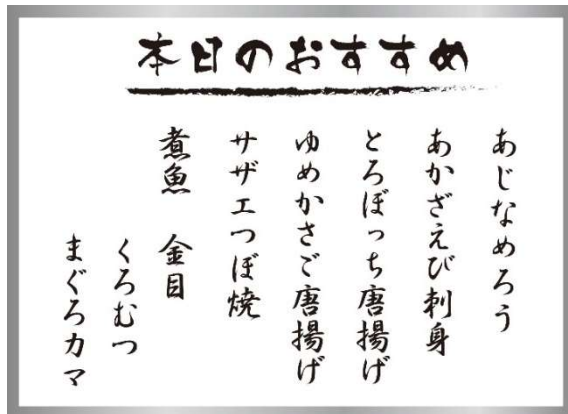 本日のおすすめ
あじなめろう
あかざえび刺身
とろぼっち唐揚げ
ゆめかさご唐揚げ
サザエつぼ焼
煮魚 金目
くろむつ
まぐろカマ